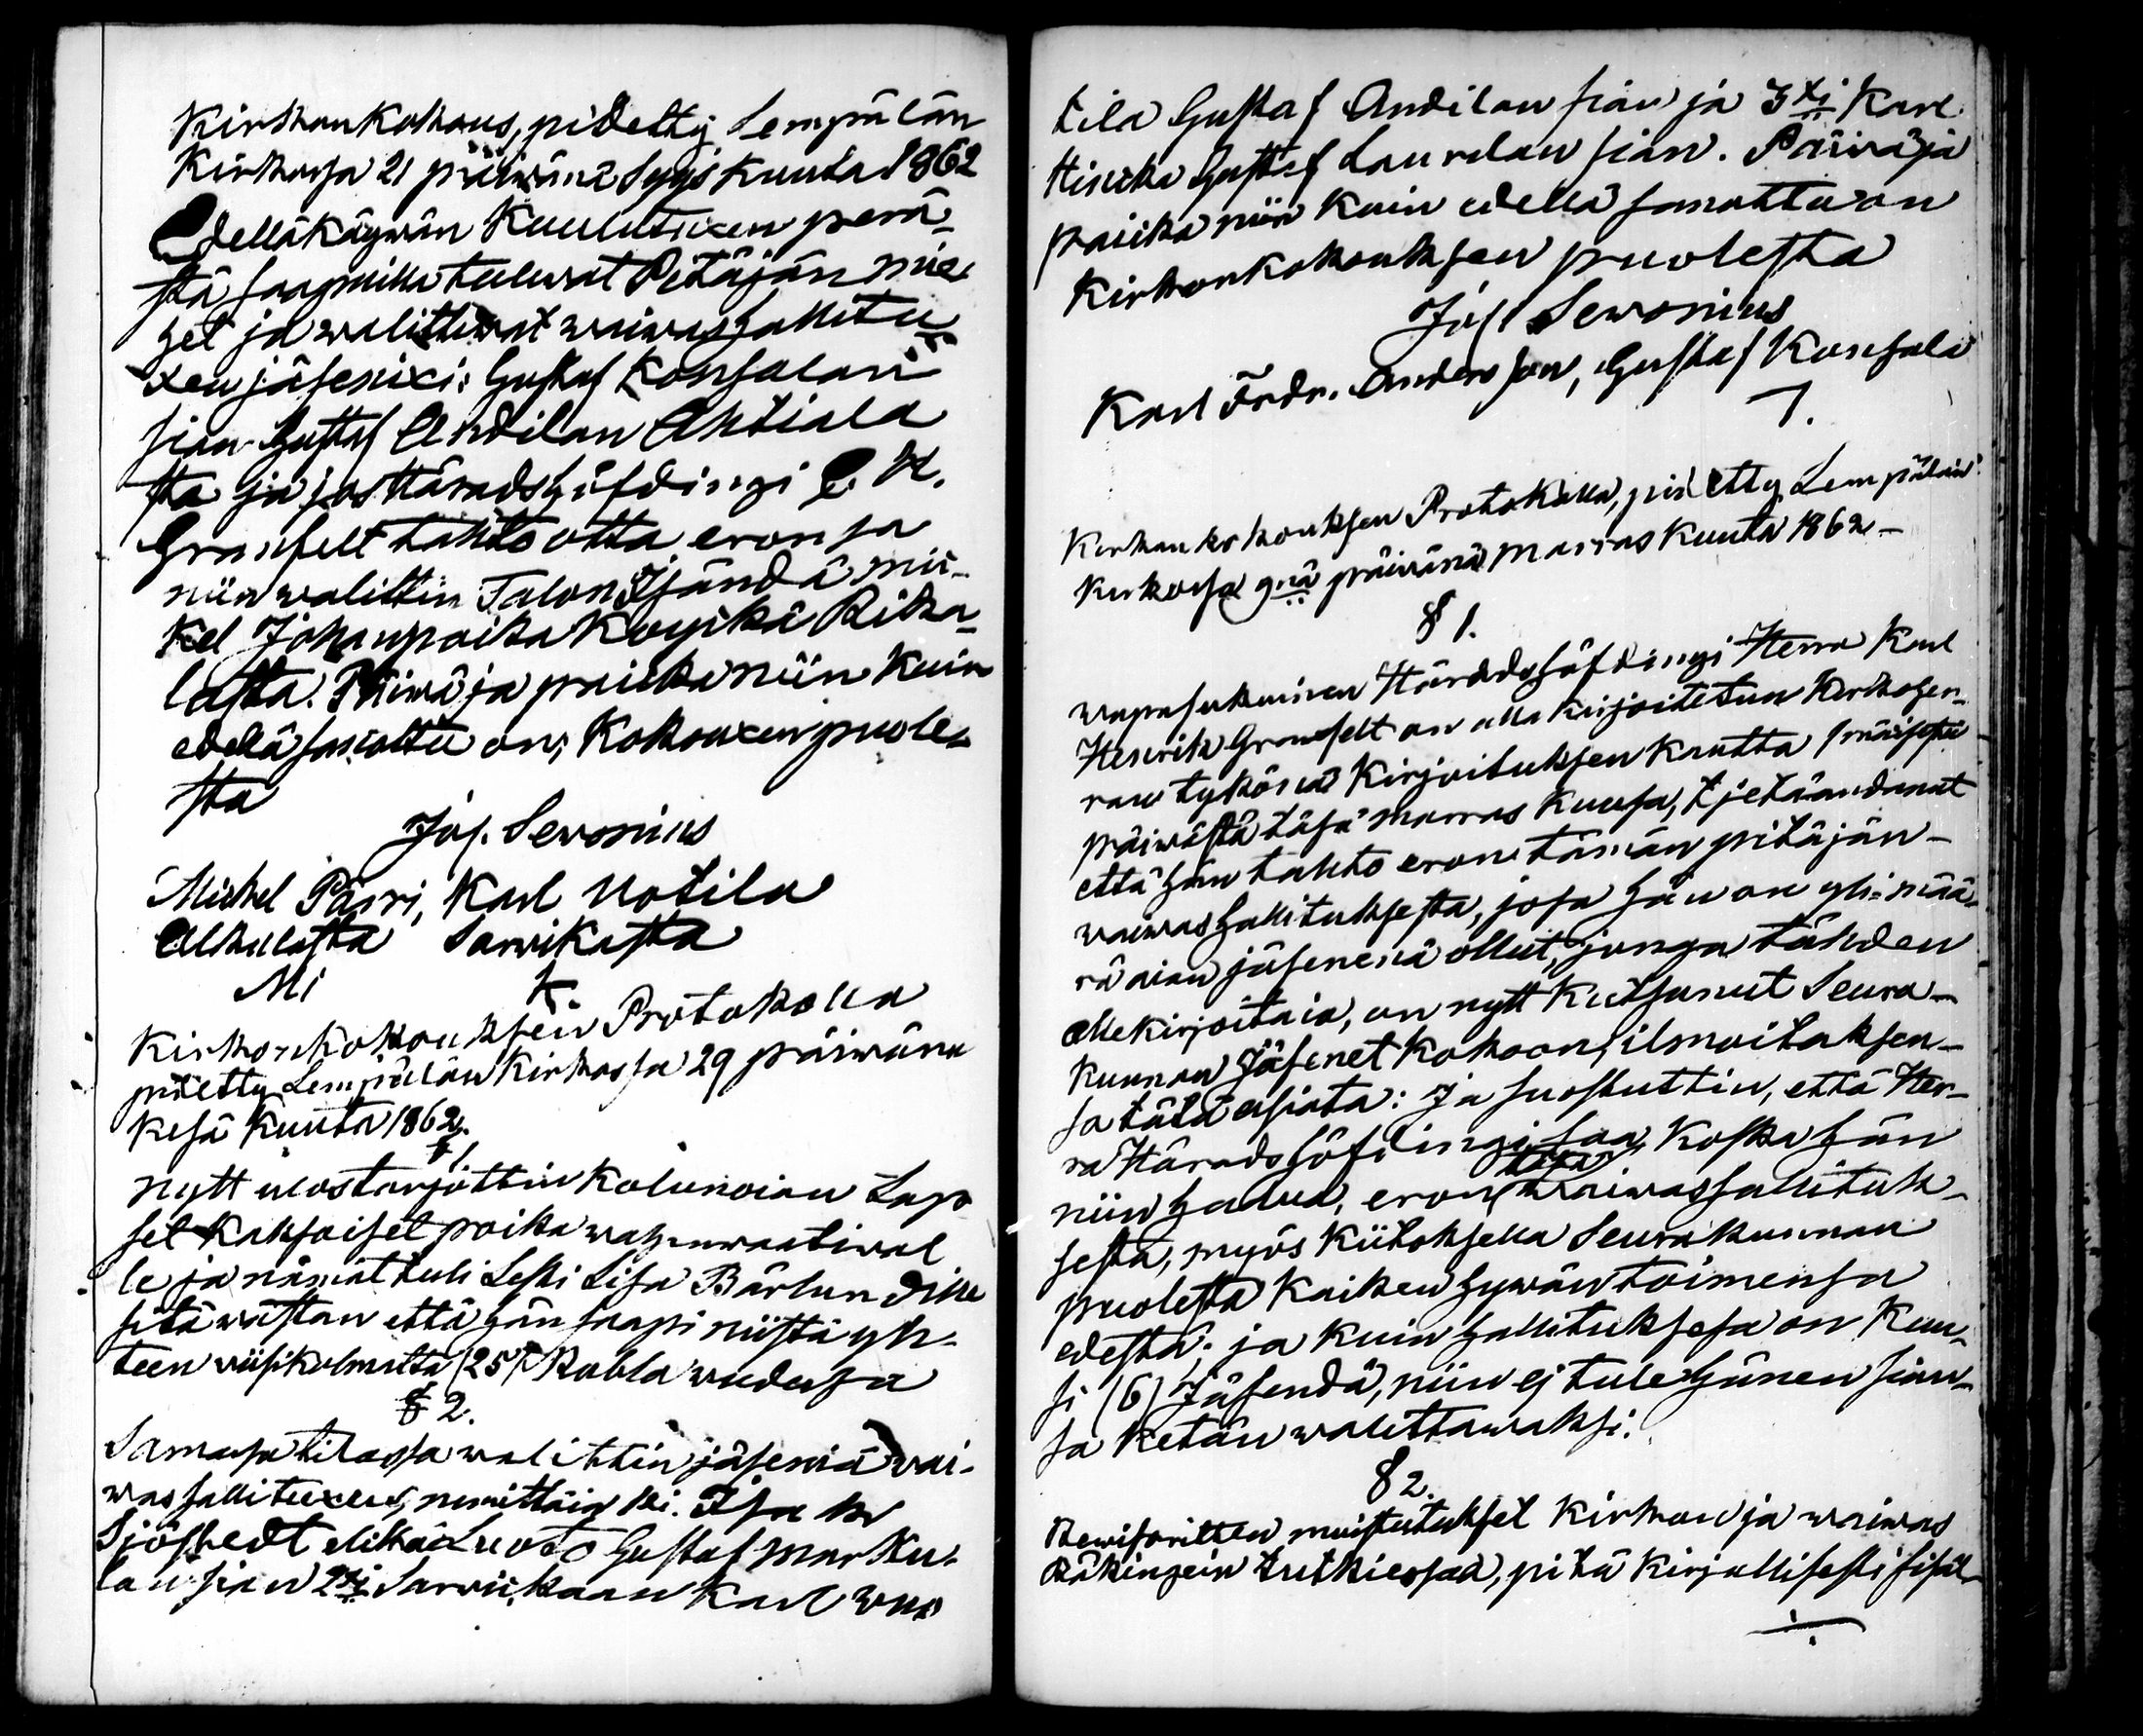 Kirkon Kokous, pidetty Lempälän
Kirkosa 21 päiwänä Syys Kuuta 1862
Edelläkäywän Kuulutuxen perä-
stä saapuilla tulewat Pitäjän mie-
het ja walittiwat waiwashallitu-
xen jäsenixi: Gustaf Konsalan
sian Gustaf Andilan Ahtiala
sta ja jos Häradshöfdingi C. H.
Granfelt tahto otta eronsa
niin walittin Talon Isändä Mi-
kel Johanpoika Koyikä Rika-
lasta. Päiwä ja paikka niin Kuin
edellä sanottu on; Kokouxen puole-
sta
Jos. Sewonius
Michel Passi, Karl Notila
Alkulasta Sarwikasta
Mi K.
Kirkonkokouksen Protokolla
pidetty Lempälän Kirkossa 29 päiwänä
Kesä Kuuta 1862.
§ 1.
Nytt ulostarjottin Kolunoian Lap
set Kaksoiset poika wähenwaatiwal
le ja nämät tuli Leski Lisa Bärlundille
sitä wastan että hän saapi niistä yh-
teen wiisikolmatta (25) Rubla wuodessa
§ 2.
Samasa tilassa walittin jäseniä wai-
washallituxeen, nimittäin 1ksi. Isak
Sjöstedt elikä Luoto Gustaf Marku-
lan sian 2ksi Sarwikaan Karl Wuo
tila Gustaf Andilan sian ja 3xi Karl
Hinkka Gustaf Laurilan sian. Päiwä ja
paikka niin Kuin edellä sanottu on
Kirkonkokouksen puolesta
Jos. Sewonius
Karl Fredr. Andersson, Gustaf Konsala
7.
Kirkonkokouksen Protokolla, pidetty Lempälän
Kirkossa 9nä päiwänä Marras Kuuta 1862 -
§ 1.
Wapasukuinen Häradshöfdingi Herra Karl
Henrik Granfelt on alla kirjoitetun Kirkoher-
ran tykönä Kirjoituksen Kautta 1mäisestä
päiwästä täsä marras Kuusa, tjetäandanut
että hän tahto eron tämän pitäjän-
waiwashallituksesta, josa hän on ylimää-
räaian jäsenenä ollut, jonga tähden
allekirjoitaia, on nytt Kutsunut Seura-
kunnan Jäsenet Kokoon, ilmoitaksen-
sa tätä asiata: Ja suostuttin, että Her-
ra Häradshöfdingi saa, Koska hän
niin halua, eron täsä waiwashallituk-
sesta, myös Kiitoksella Seurakunnan
puolesta Kaiken hywän toimensa
edestä; ja kuin hallituksesa on Kuu-
si (6) Jäsendä, niin ej tule hänen sian-
sa Ketän walittawaksi.
§ 2.
Rewisoritten muistutukset Kirkon ja waiwas
Räkingein tutkiessaa, pitä Kirjallisesti sisäl-